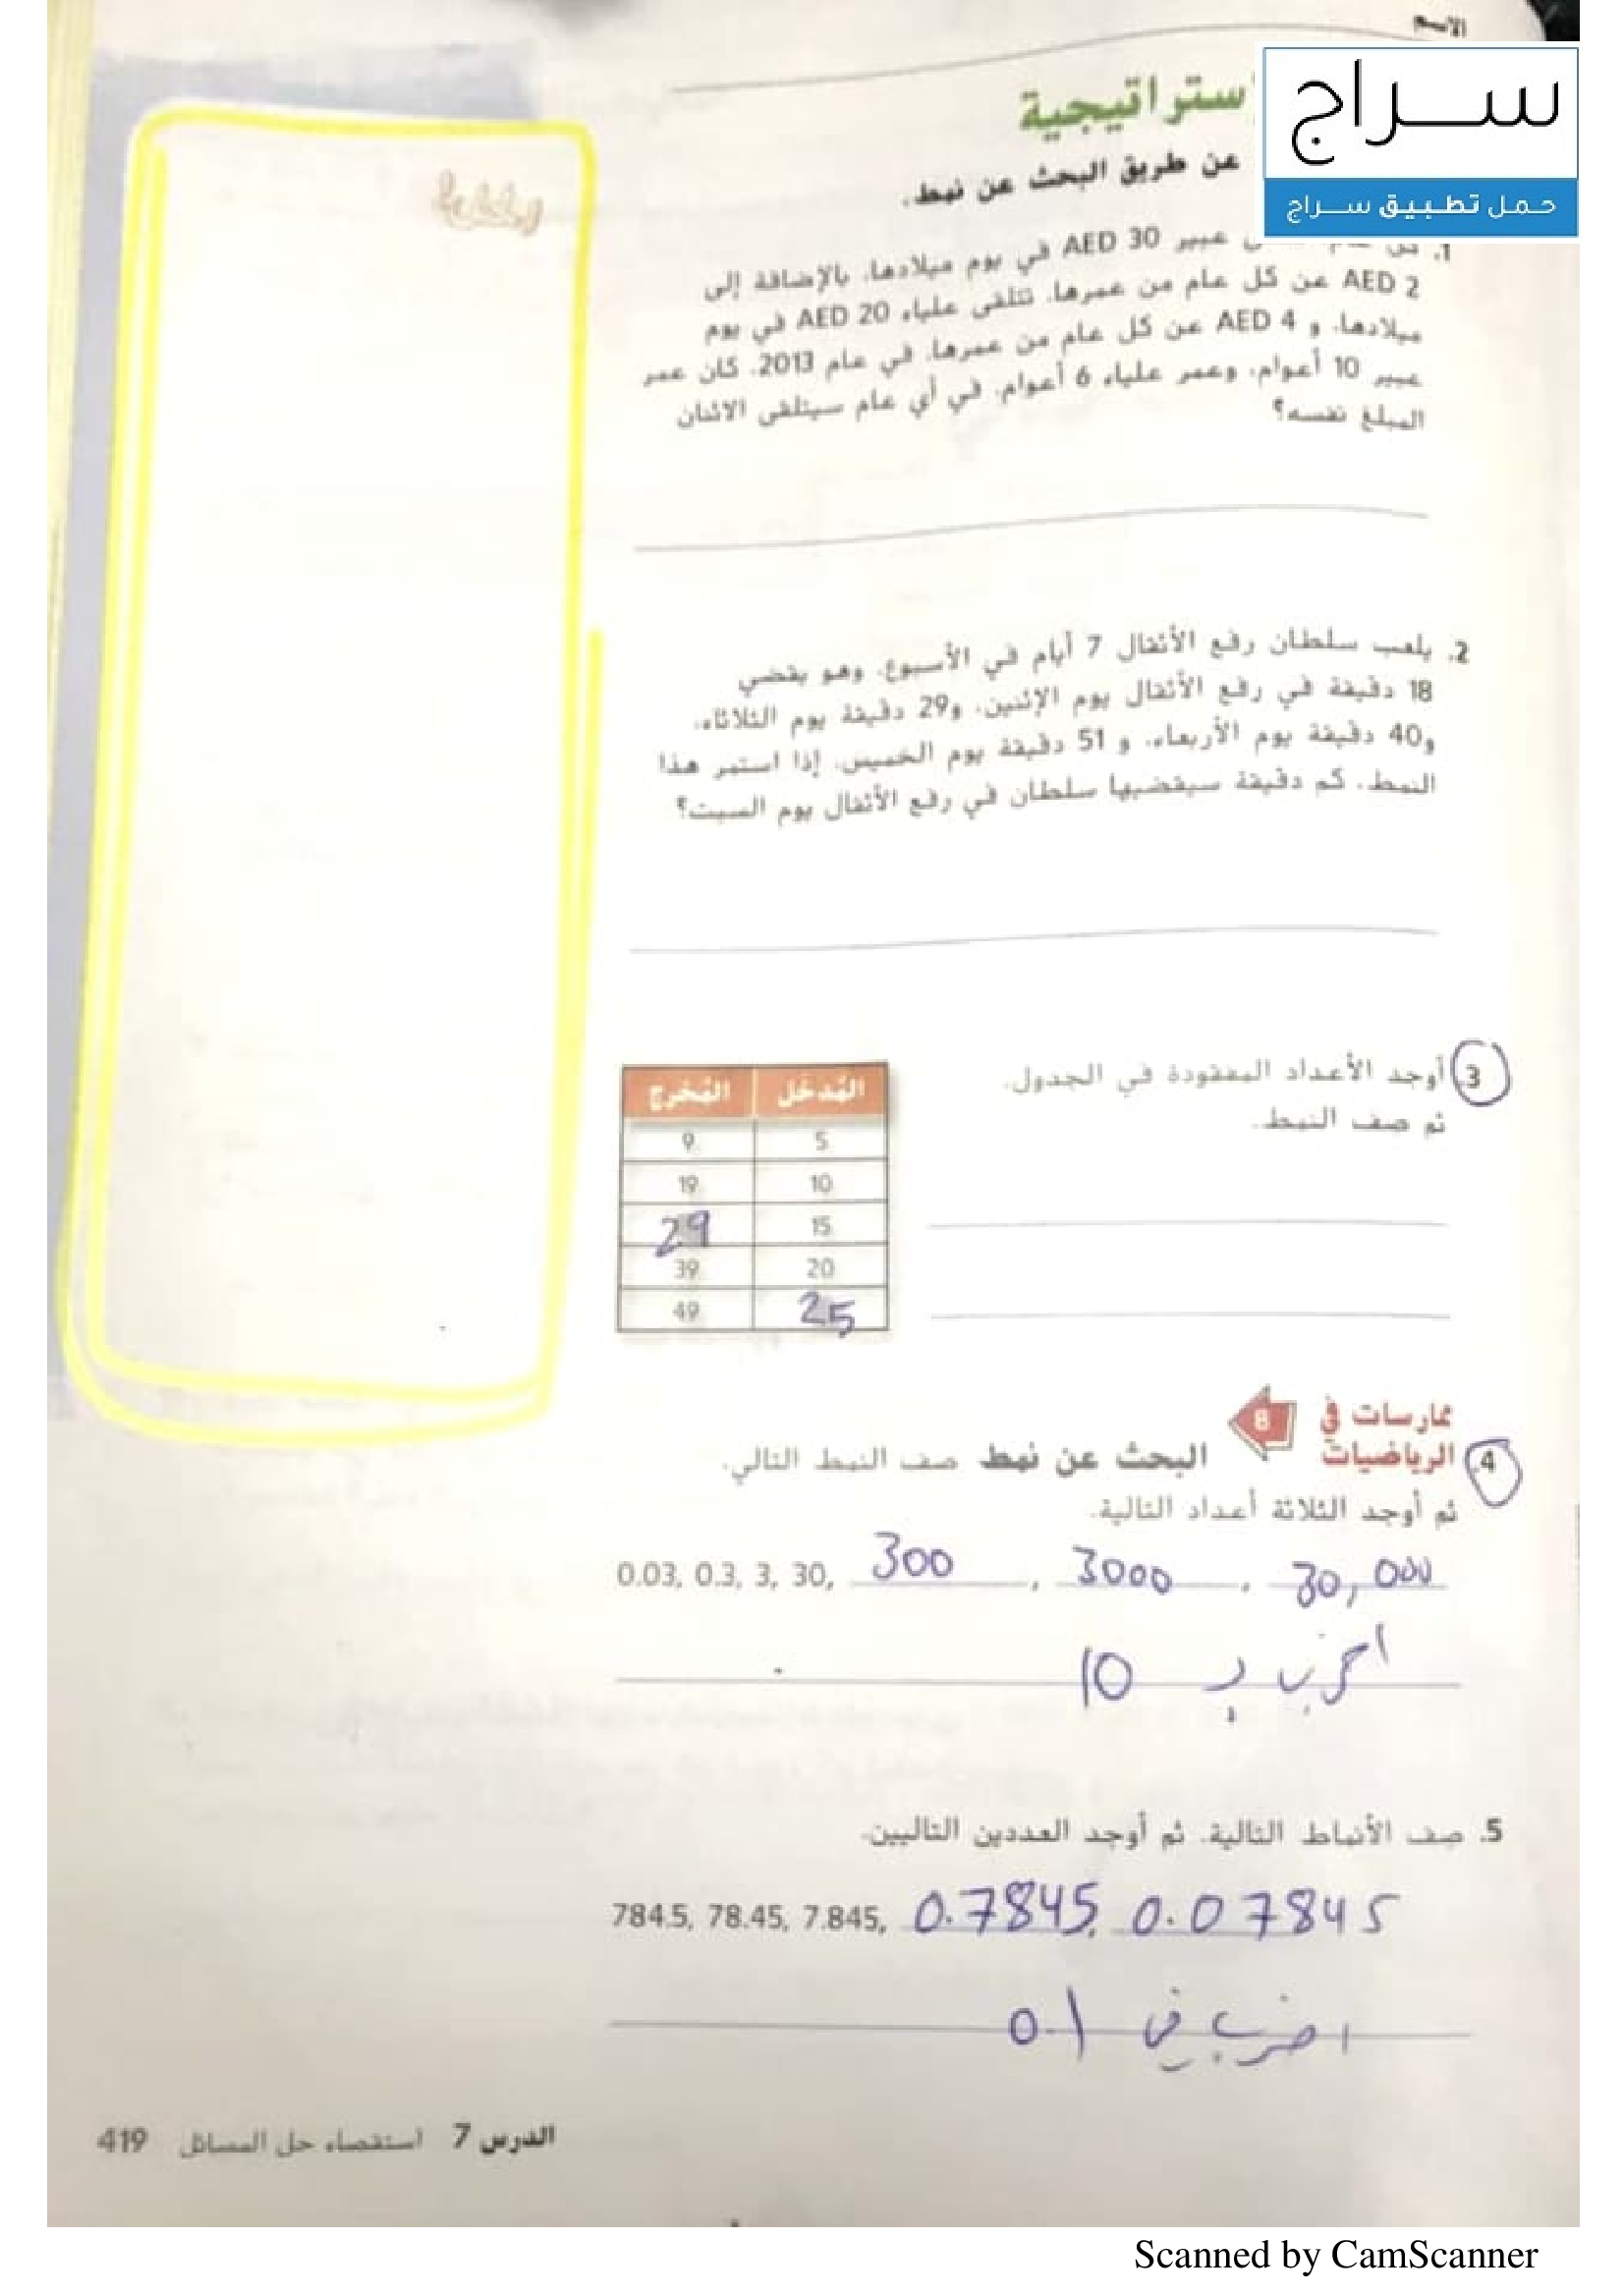 الاسم
سراج
حمل تطبيق سراج
إستراتيجية
عن طريق البحث عن نمط.
1. كل عام، عبير AED 30 في يوم ميلادها، بالإضافة إلى
AED 2 عن كل عام من عمرها. تتلقى علياء AED 20 في يوم
ميلادها، و AED 4 عن كل عام من عمرها. في عام 2013، كان عمر
عبير 10 أعوام، وعمر علياء 6 أعوام. في أي عام سيتلقى الاثنان
المبلغ نفسه؟
2. يلعب سلطان رفع الأثقال 7 أيام في الأسبوع. وهو يقضي
18 دقيقة في رفع الأثقال يوم الإثنين، و29 دقيقة يوم الثلاثاء،
و40 دقيقة يوم الأربعاء، و 51 دقيقة يوم الخميس. إذا استمر هذا
النمط، كم دقيقة سيقضيها سلطان في رفع الأثقال يوم السبت؟
3. أوجد الأعداد المفقودة في الجدول.
ثم صف النمط.
المُدخَل المُخرج
5 9
10 19
15 29
20 39
25 49
ممارسات في
الرياضيات
8
4. البحث عن نمط صف النمط التالي.
ثم أوجد الثلاثة أعداد التالية.
0.03, 0.3, 3, 30, 300, 3000, 30,000
اضرب بـ 10
5. صف الأنماط التالية. ثم أوجد العددين التاليين.
784.5, 78.45, 7.845, 0.7845, 0.07845
اضرب في 0.1
الدرس 7 استقصاء حل المسائل 419
Scanned by CamScanner